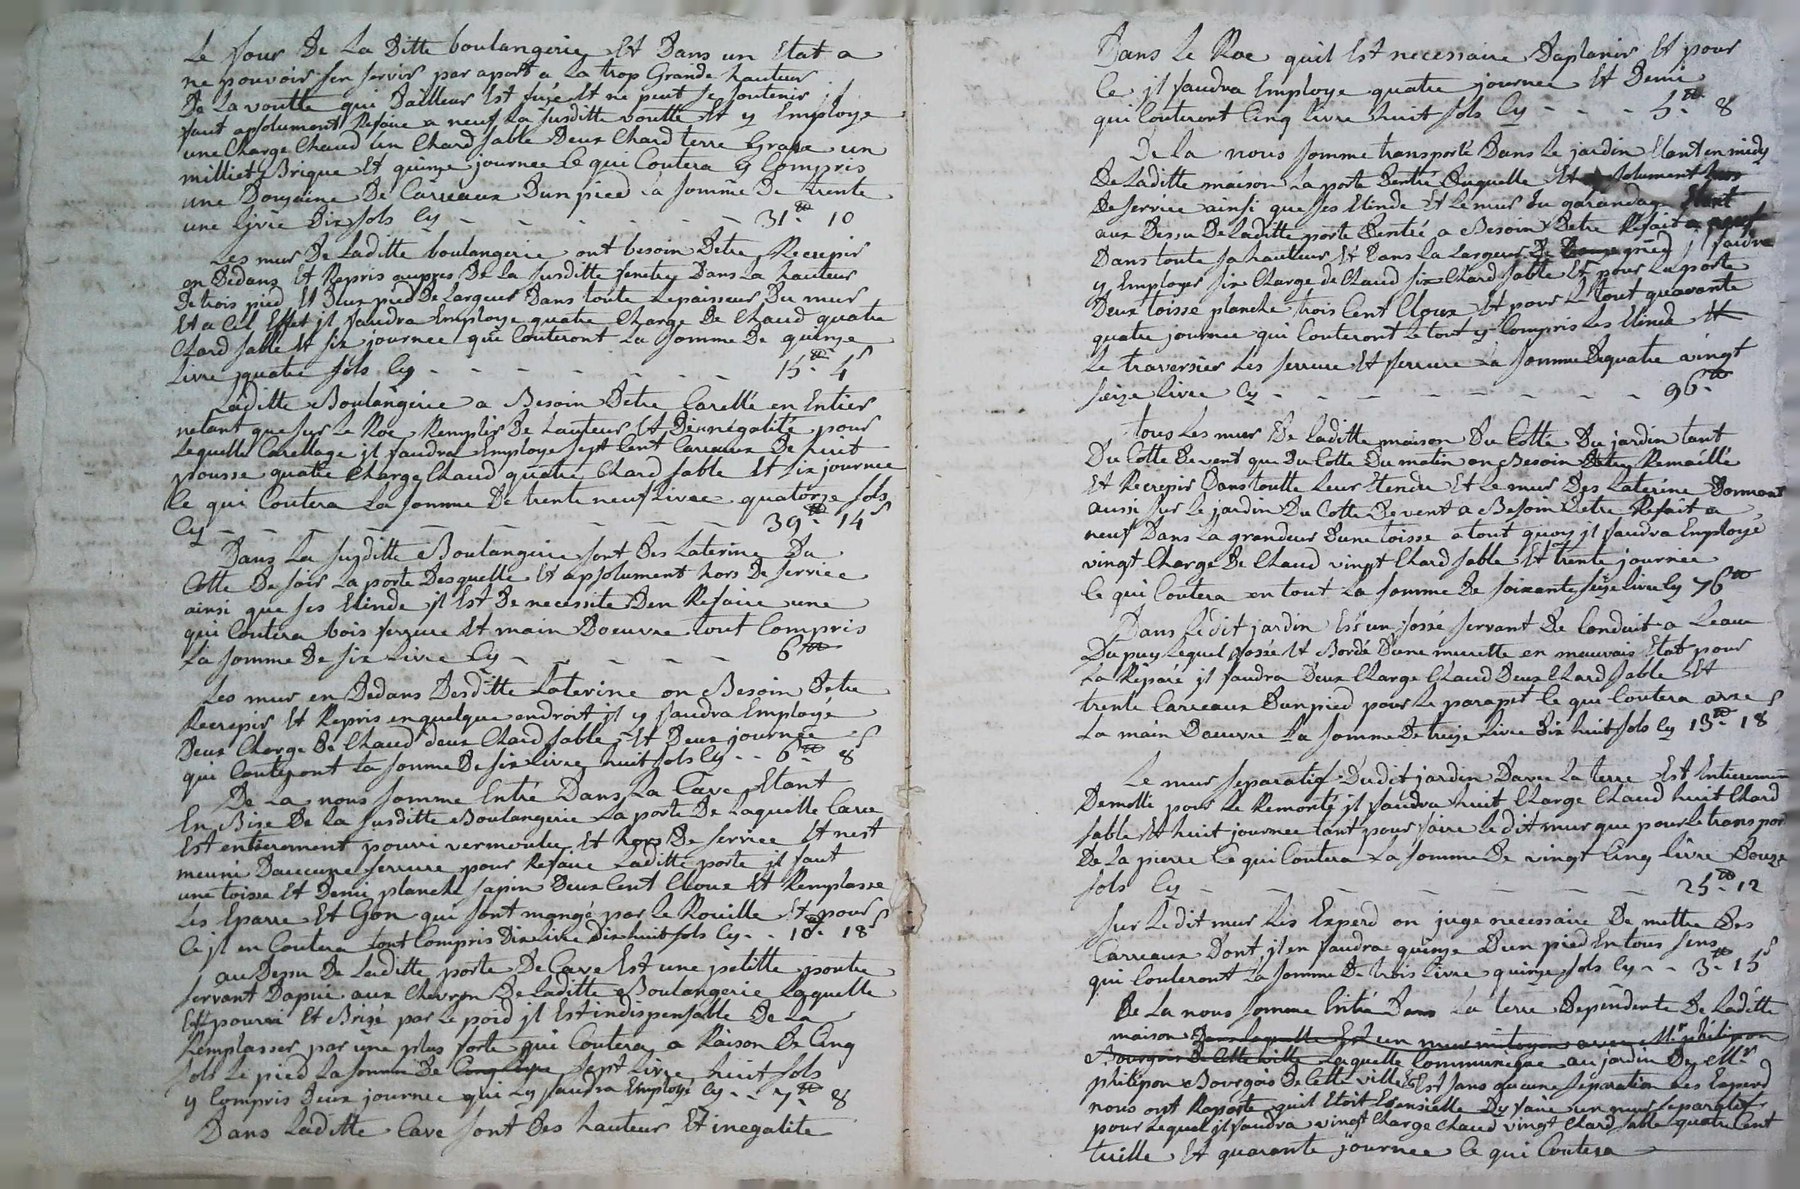 Le four De La Ditte boulangerie Et Dans un Etat a
ne pouvoir sen servir par aport a La trop Grande hauteur
De La voutte qui Dailleur Est fuze Et ne peut se soutenir il
faut apsolument Refaire a neuf La susditte voutte Et y Employe
une Charge Chaud un Chard sable Deux Chard terre Grase un
milliet Brique Et quinze journee Ce qui Coutera y Compris
une Douzaine De Carreaux Dun pied La somme De trente
une livre Dix sols Cy - - - - - - 31ᵗᵗ 10
Les mur De Laditte boulangerie ont besoin Detre Recrepir
en Dedans Et Repris aupres De La susditte fenetre Dans La hauteur
De trois pied Et Deux pied De Largeur Dans toute Lepaisseur Du mur
Et a Cet Effet jl faudra Employe quatre Charge De Chaud quatre
Chard sable Et six journee qui Couteront La somme De quinze
Livre quatre sols Cy - - - - - - - 15ᵗᵗ 4ˢ
Laditte Boulangerie a Besoin Detre Carellé en Entier
netant que sur Le Roc Remplis De hauteur Et Deinegalité pour
Lequelle Carellage jl faudra Employe sept Cent Carreaux De huit
pousse quatre Charge Chaud quatre Chard sable Et six journee
Ce qui Coutera La somme De trente neuf Livre quatorze sols
Cy - - - - - - - - - 39ᵗᵗ 14ˢ
Dans La susditte Boulangerie sont Des Laterine Du
Cotte De soir La porte Desquelle Et apsolument hors De service
ainsi que ses Etinde jl Est De necessite Den Refaire une
qui Coutera bois ferrure Et main Doeuvre tout Compris
La somme De six Livre Cy - - - - - 6ᵗᵗ
Les mur en Dedans Desditte Laterine on Besoin Detre
Recrepir Et Repris en quelque endroit jl y faudra Employé
Deux Charge De Chaud deux Chard sable Et Deux journée
qui Couteront La somme De six Livre huit sols Cy - - 6ᵗᵗ 8ˢ
De La nous somme Entré Dans La Cave Etant
En Bise De La susditte Boulangerie La porte De Laquelle Cave
Est entierement pourri vermoulue Et hors De service Et nest
meuni Daucune ferrure pour Refaire Laditte porte jl faut
une toisse Et Demi planche sapin Deux Cent Cloux Et Remplasse
Les Eparre Et Gon qui sont mangé par Le Rouille Et pour
Ce jl en Coutera tout Compris Dix Livre Dix huit sols Cy - - 10ᵗᵗ 18ˢ
au Desu De Laditte porte De Cave Est une petitte poutre
servant Dapui aux Chevron De Laditte Boulangerie Laquelle
Est pourri Et Brisé par Le poid jl Est indispensable De La
Remplasser par une plus forte qui Coutera a Raison De Cinq
sols Le pied La somme De Cinq Livre sept Livre huit sols
y Compris Deux journee qui Ly faudra Employé Cy - - 7ᵗᵗ 8
Dans Laditte Cave sont Des hauteur Et inegalité
Dans Le Roc quil Est necessaire Daplanir Et pour
Ce jl faudra Employe quatre journee Et Demi
qui Couteront Cinq Livre huit sols Cy - - - 5ᵗᵗ 8
De La nous somme transporté Dans Le jardin Etant en midy
De Laditte maison La porte Dentré Duquelle Et apsolument hors
De service ainsi que ses Etinde Et Le mur Du garandage Etant
aux Dessu De Laditte porte Dentré a Besoin Detre Refait a neuf
Dans toute sa hauteur Et Dans La Largeur De pied jl faudra
y Employer six Charge de Chaud six Chard sable Et pour La porte
Deux toisse planche trois Cent Cloux Et pour Le tout quarante
quatre journee qui Couteront Le tout y Compris Les Etinde Et
Le traversier Les serrure Et ferrure La somme De quatre vingt
seize Livre Cy - - - - - - - - 96ᵗᵗ
Tous Les mur De Laditte maison Du Cotte Du jardin tant
Du Cotte De vent que Du Cotte Du matin on Besoin Detre Remaillé
Et Recrepir Dans toutte Leur Etendu Et Le mur Des Laterine Donnant
aussi sur Le jardin Du Cotte De vent a Besoin Detre Refait a
neuf Dans La grandeur Dune toisse a tout quoy jl faudra Employé
vingt Charge De Chaud vingt Chard sable Et trente journée
Ce qui Coutera en tout La somme De soixante seize Livre Cy 76ᵗᵗ
Dans Ledit jardin Est un fossé servant De Conduit a Leau
Du puy Lequel fossé Et Bordé Dune murette en mauvais Etat pour
La Réparé jl faudra Deux Charge Chaud Deux Chard sable Et
trente Carreaux Dun pied pour Le parapet Ce qui Coutera avec
La main Doeuvre La somme De treize Livre Dix huit sols Cy 13ᵗᵗ 18ˢ
Le mur separatif Dudit jardin Davec La terre Est Entieremen
Demolli pour Le Remonté jl faudra huit Charge Chaud huit Chard
sable Et huit journee tant pour faire Le dit mur que pour Le transpor
De La pierre Ce qui Coutera La somme De vingt Cinq Livre Douze
sols Cy - - - - - - - - 25ᵗᵗ 12
sur Ledit mur Les Experd on juge necessaire De mettre Des
Carreaux Dont jl en faudra quinze Dun pied En tous sens
qui Couteront La somme De trois Livre quinze sols Cy - - 3ᵗᵗ 15ˢ
De La nous somme Entré Dans La terre Dependente De Laditte
maison Dans Laquelle Est un mur mitoyen avec Mʳ philipon
Bourgois De Cette ville Laquelle Communique au jardin De Mʳ
philipon Bourgois De Cette ville Et Est sans aucune separation Les Experd
nous ont Raporté quil Etoit Essensielle Dy faire un mur separatif
pour Lequel jl faudra vingt Charge Chaud vingt Chard sable quatre Cent
tuille Et quarante journee Ce qui Coutera